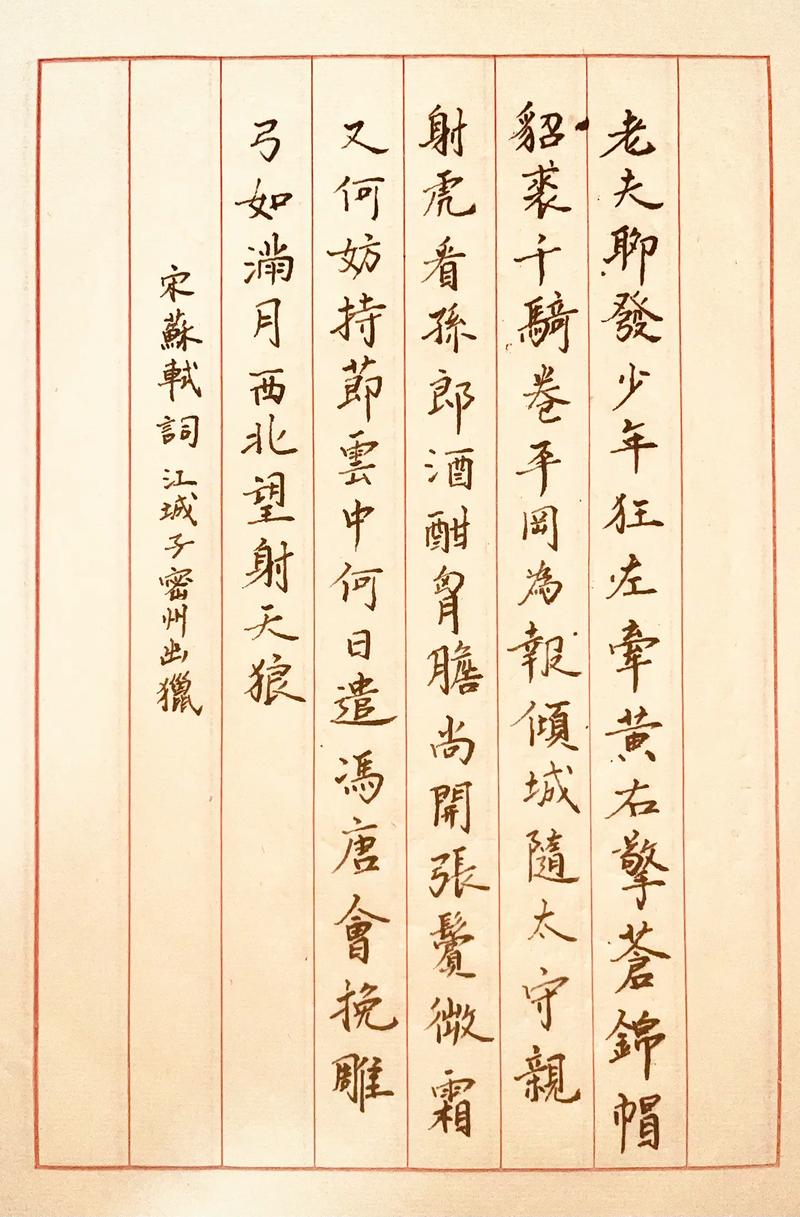 老夫聊發少年狂左牽黃右擎蒼錦帽
貂裘千騎卷平岡為報傾城隨太守親
射虎看孫郎酒酣胷膽尚開張鬢微霜
又何妨持節雲中何日遣馮唐會挽雕
弓如滿月西北望射天狼
宋蘇軾詞江城子密州出獵